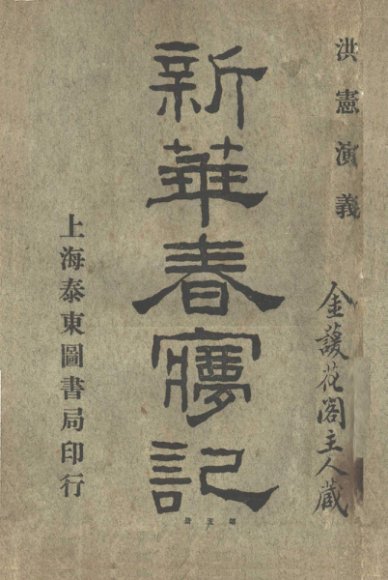 洪憲演義
金護花閣主人藏
新華春夢記
上海泰東圖書局印行